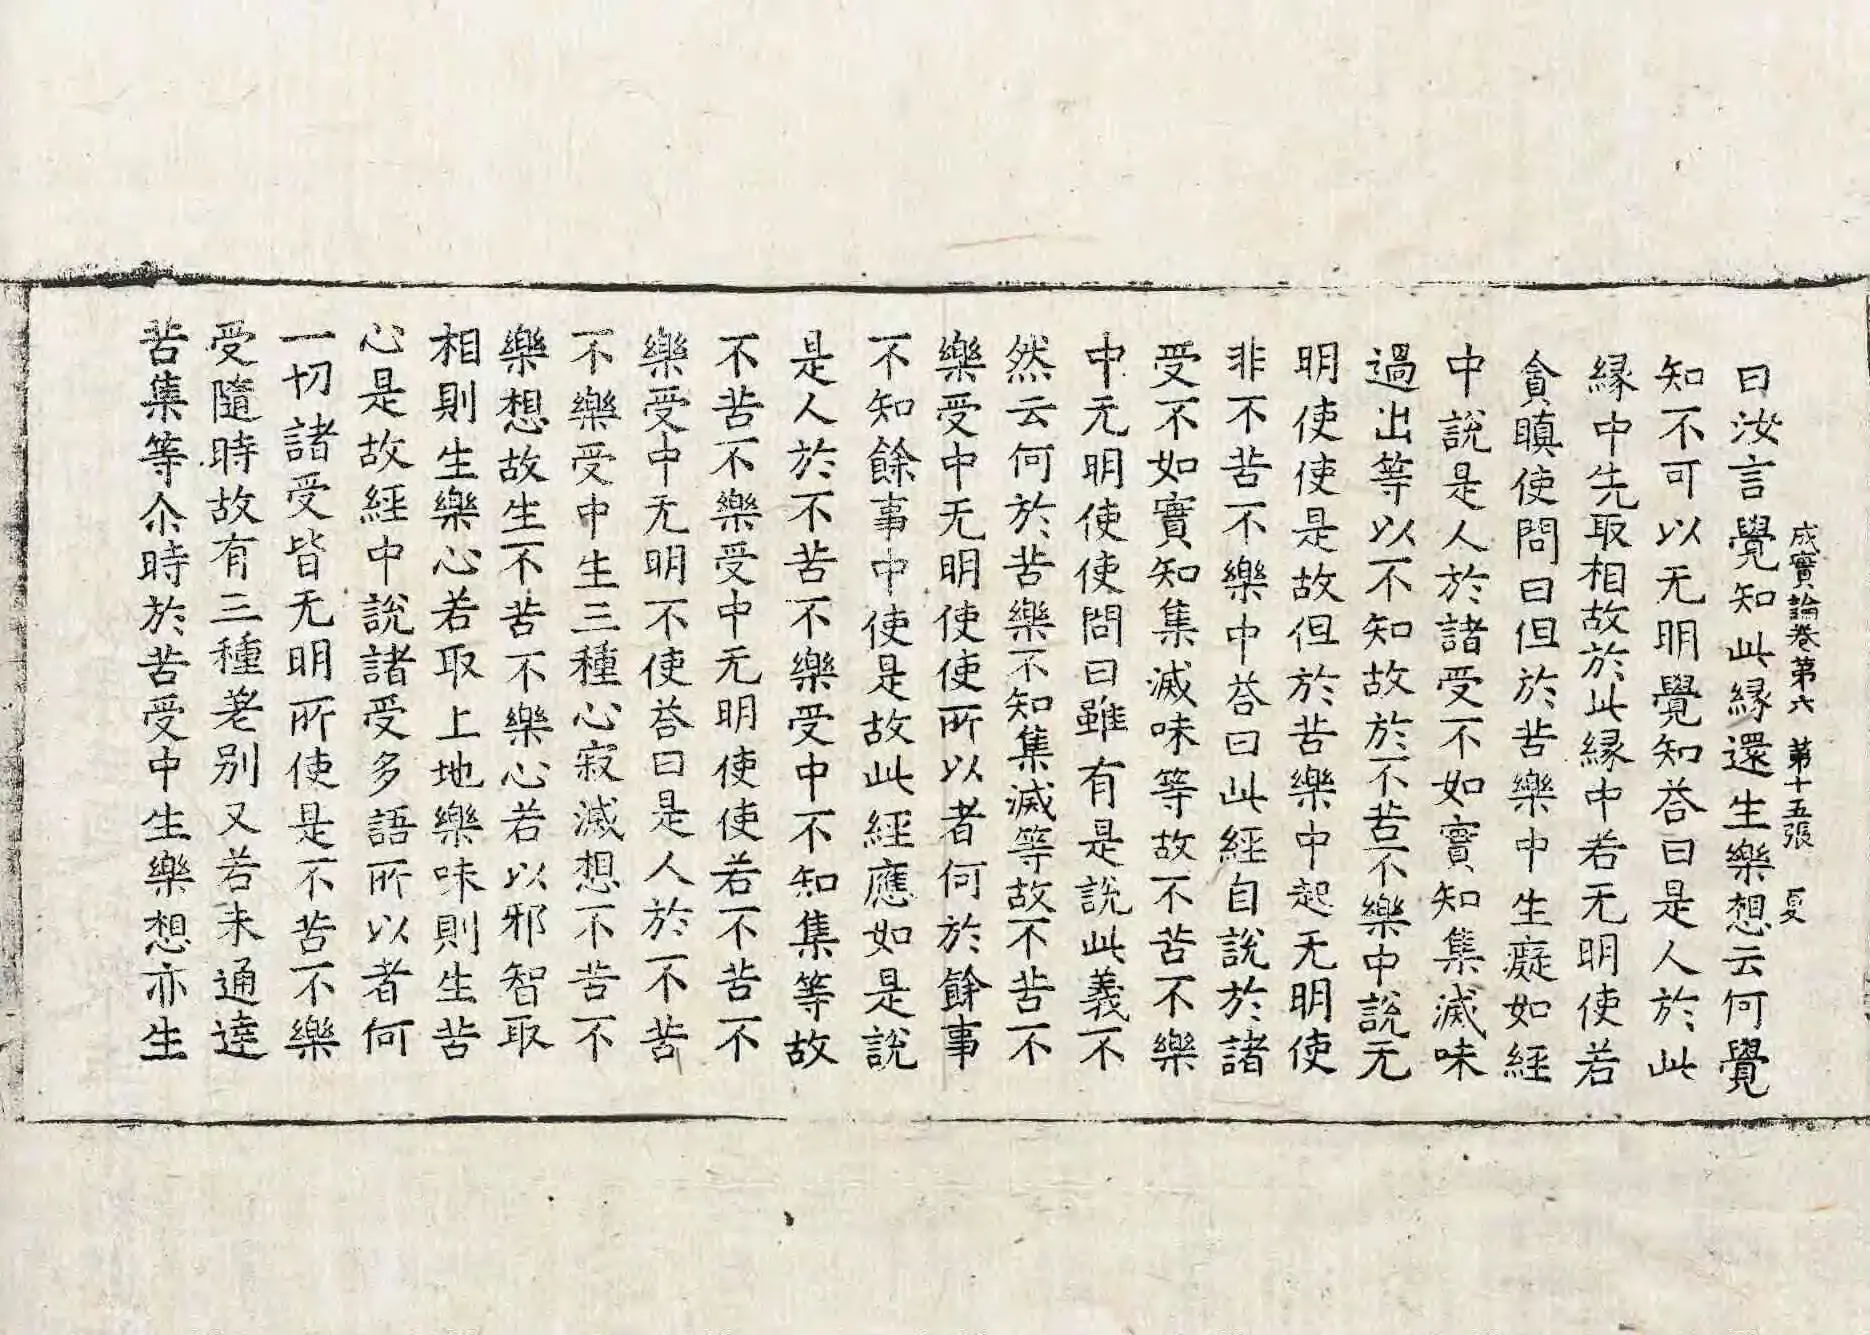 成實論卷第六　第十五張　夏
曰汝言覺知此縁還生樂想云何覺
知不可以无明覺知荅曰是人於此
縁中先取相故於此縁中若无明使若
貪瞋使問曰但於苦樂中生癡如經
中說是人於諸受不如實知集滅味
過出等以不知故於不苦不樂中說无
明使使是故但於苦樂中起无明使
非不苦不樂中荅曰此經自說於諸
受不如實知集滅味等故不苦不樂
中无明使使問曰雖有是說此義不
然云何於苦樂不知集滅等故不苦不
樂受中无明使使所以者何於餘事
不知餘事中使是故此經應如是說
是人於不苦不樂受中不知集等故
不苦不樂受中无明使使若不苦不
樂受中无明不使荅曰是人於不苦
不樂受中生三種心寂滅想不苦不
樂想故生不苦不樂心若以邪智取
相則生樂心若取上地樂味則生苦
心是故經中說諸受多語所以者何
一切諸受皆无明所使是不苦不樂
受隨時故有三種差別又若未通達
苦集等尒時於苦受中生樂想亦生